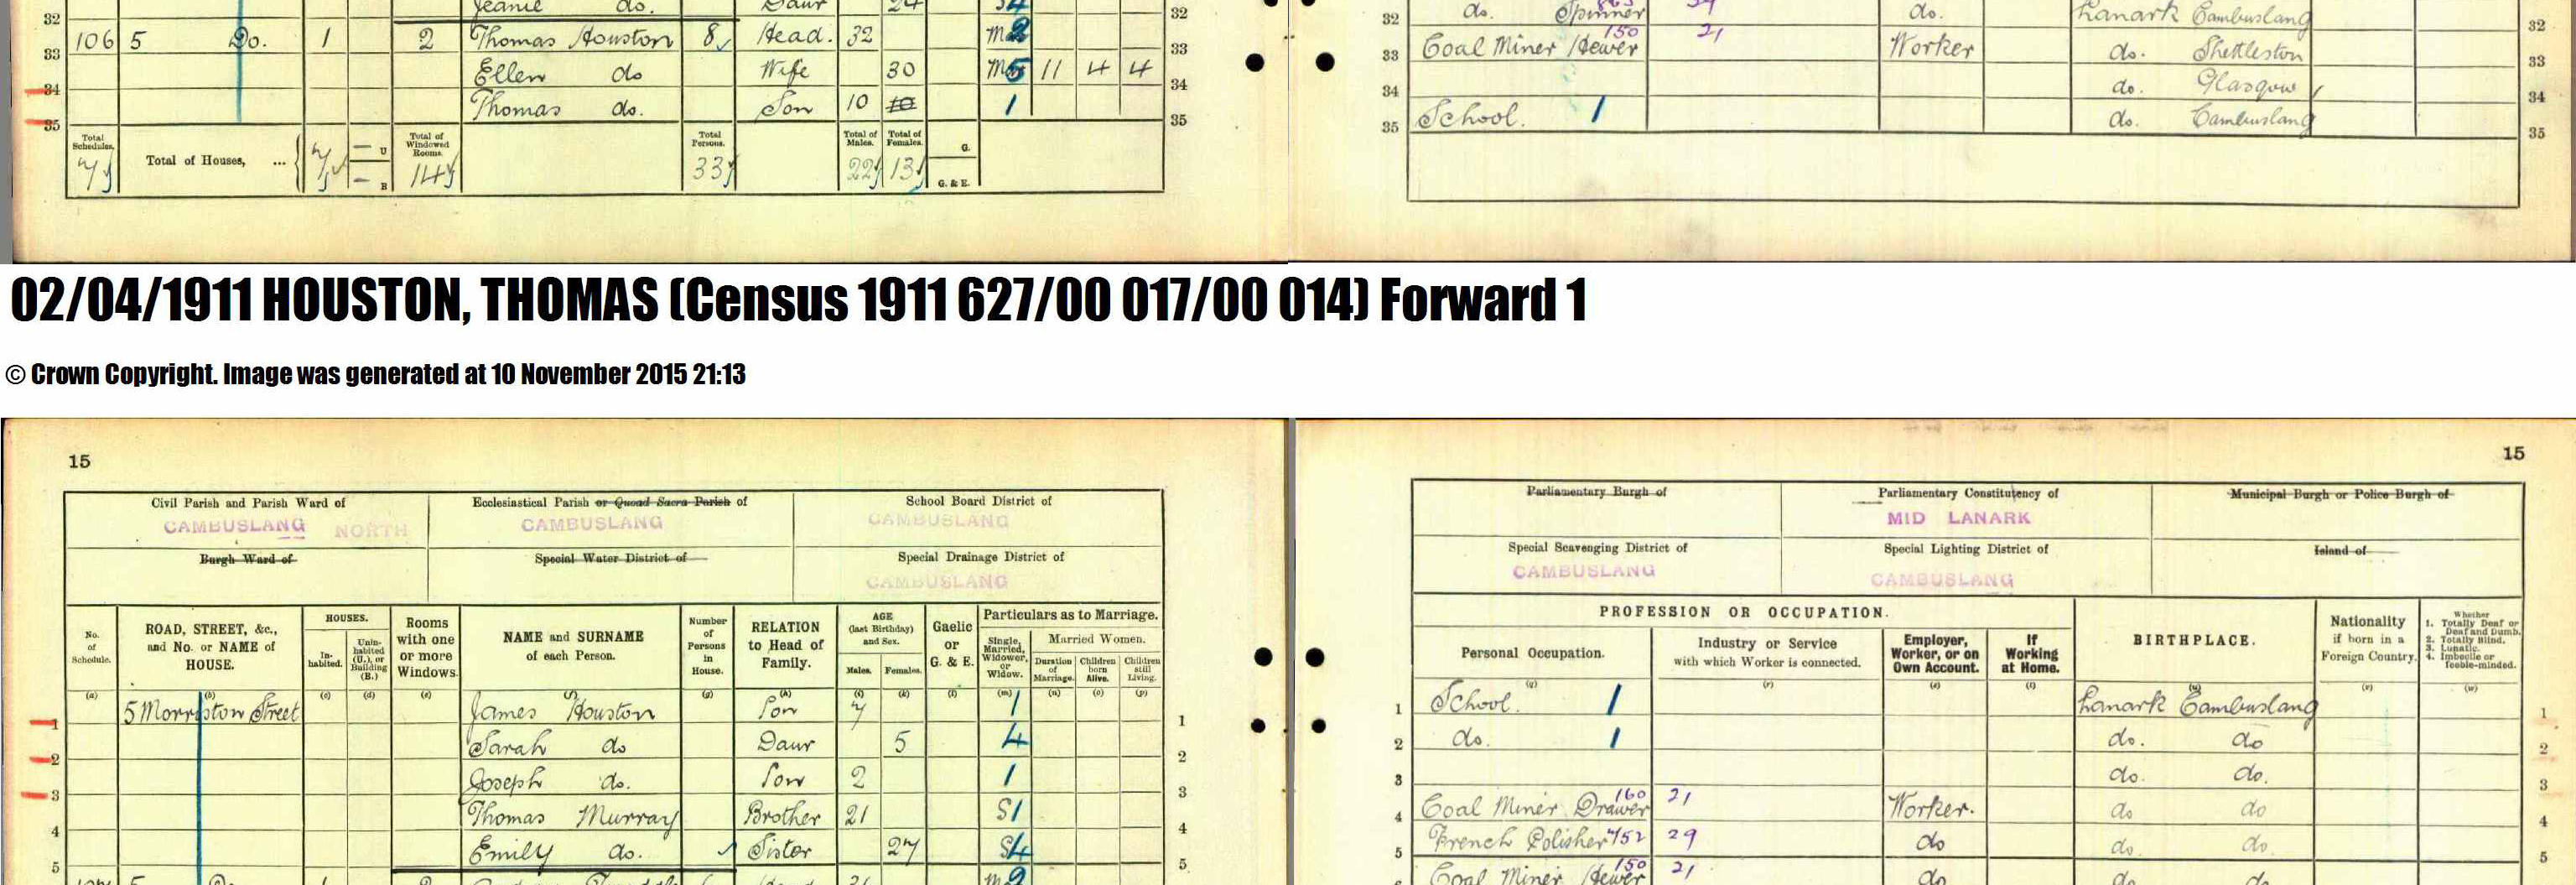 32 Jeanie do. Daur 24 32
106 5 Do. 1 2 Thomas Houston 8 Head. 32 M 33
33 Ellen do Wife 30 M 11 4 4 34
34 Thomas do. Son 10 10 1 35
35
Total Schedules, Total of Houses, ... U B Total of Windowed Rooms. 14 Total Persons. 33 Total of Males. 22 Total of Females. 13 G. G. & E.
32 do. Spinner do. Lanark Cambuslang 32
33 Coal Miner Hewer 150 21 Worker do. Shettleston 33
34 do. Glasgow 34
35 School. 1 do. Cambuslang 35
02/04/1911 HOUSTON, THOMAS (Census 1911 627/00 017/00 014) Forward 1
© Crown Copyright. Image was generated at 10 November 2015 21:13
15
Civil Parish and Parish Ward of CAMBUSLANG NORTH
Ecclesiastical Parish or Quoad Sacra Parish of CAMBUSLANG
School Board District of CAMBUSLANG
Burgh Ward of
Special Water District of
Special Drainage District of CAMBUSLANG
No. of Schedule.
ROAD, STREET, &c., and No. or NAME of HOUSE.
HOUSES. In-habited. Unin-habited (U.), or Building (B.)
Rooms with one or more Windows.
NAME and SURNAME of each Person.
Number of Persons in House.
RELATION to Head of Family.
AGE (last Birthday) and Sex. Males. Females.
Gaelic or G. & E.
Particulars as to Marriage. Single, Married, Widower, or Widow. Married Women. Duration of Marriage. Children born Alive. Children still Living.
(a) (b) (c) (d) (e) (f) (g) (h) (i) (k) (l) (m) (n) (o) (p)
1 5 Morriston Street James Houston Son 7 1 1
2 Sarah do Daur 5 4 2
3 Joseph do. Son 2 1 3
4 Thomas Murray Brother 21 S1 4
5 Emily do. Sister 27 S4 5
15
Parliamentary Burgh of
Parliamentary Constituency of MID LANARK
Municipal Burgh or Police Burgh of
Special Scavenging District of CAMBUSLANG
Special Lighting District of CAMBUSLANG
Island of
PROFESSION OR OCCUPATION.
Personal Occupation.
Industry or Service with which Worker is connected.
Employer, Worker, or on Own Account.
If Working at Home.
BIRTHPLACE.
Nationality if born in a Foreign Country.
Whether 1. Totally Deaf or Deaf and Dumb. 2. Totally Blind. 3. Lunatic. 4. Imbecile or feeble-minded.
(q) (r) (s) (t) (u) (v) (w)
1 School. 1 Lanark Cambuslang 1
2 do. 1 do. do 2
3 do. do. 3
4 Coal Miner Drawer 160 21 Worker. do do 4
5 French Polisher 452 29 do do. do. 5
Coal Miner Hewer 150 21 do do. do